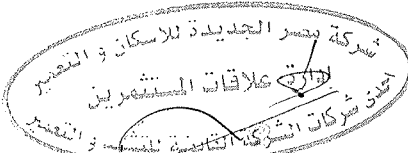 شركة مصر الجديدة للاسكان و التعمير
إدارة علاقات المستثمرين
احدى شركات الشركة القابضة للتشييد و التعمير